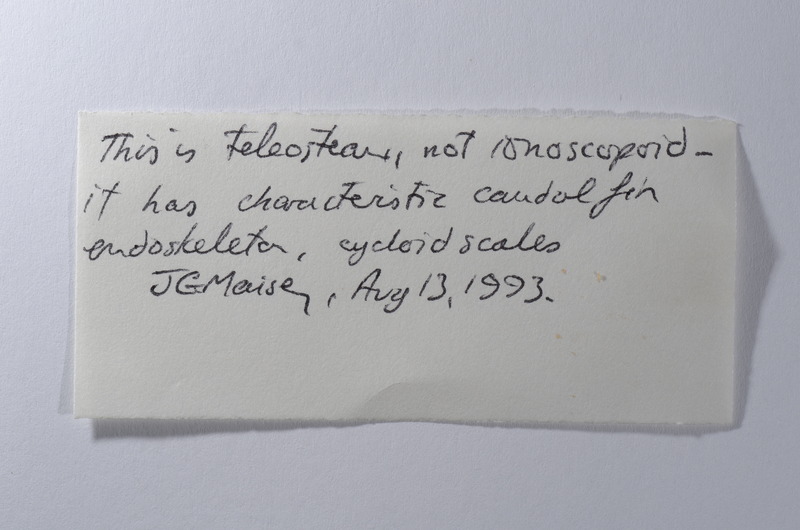 This is teleostean, not ionoscopoid -
it has characteristic caudal fin
endoskeleton, cycloid scales
JGMaisey, Aug 13, 1993.